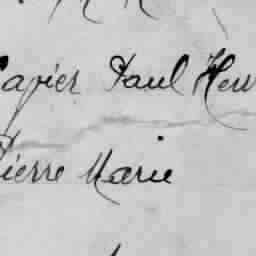 Papier Paul Hen
Pierre Marie